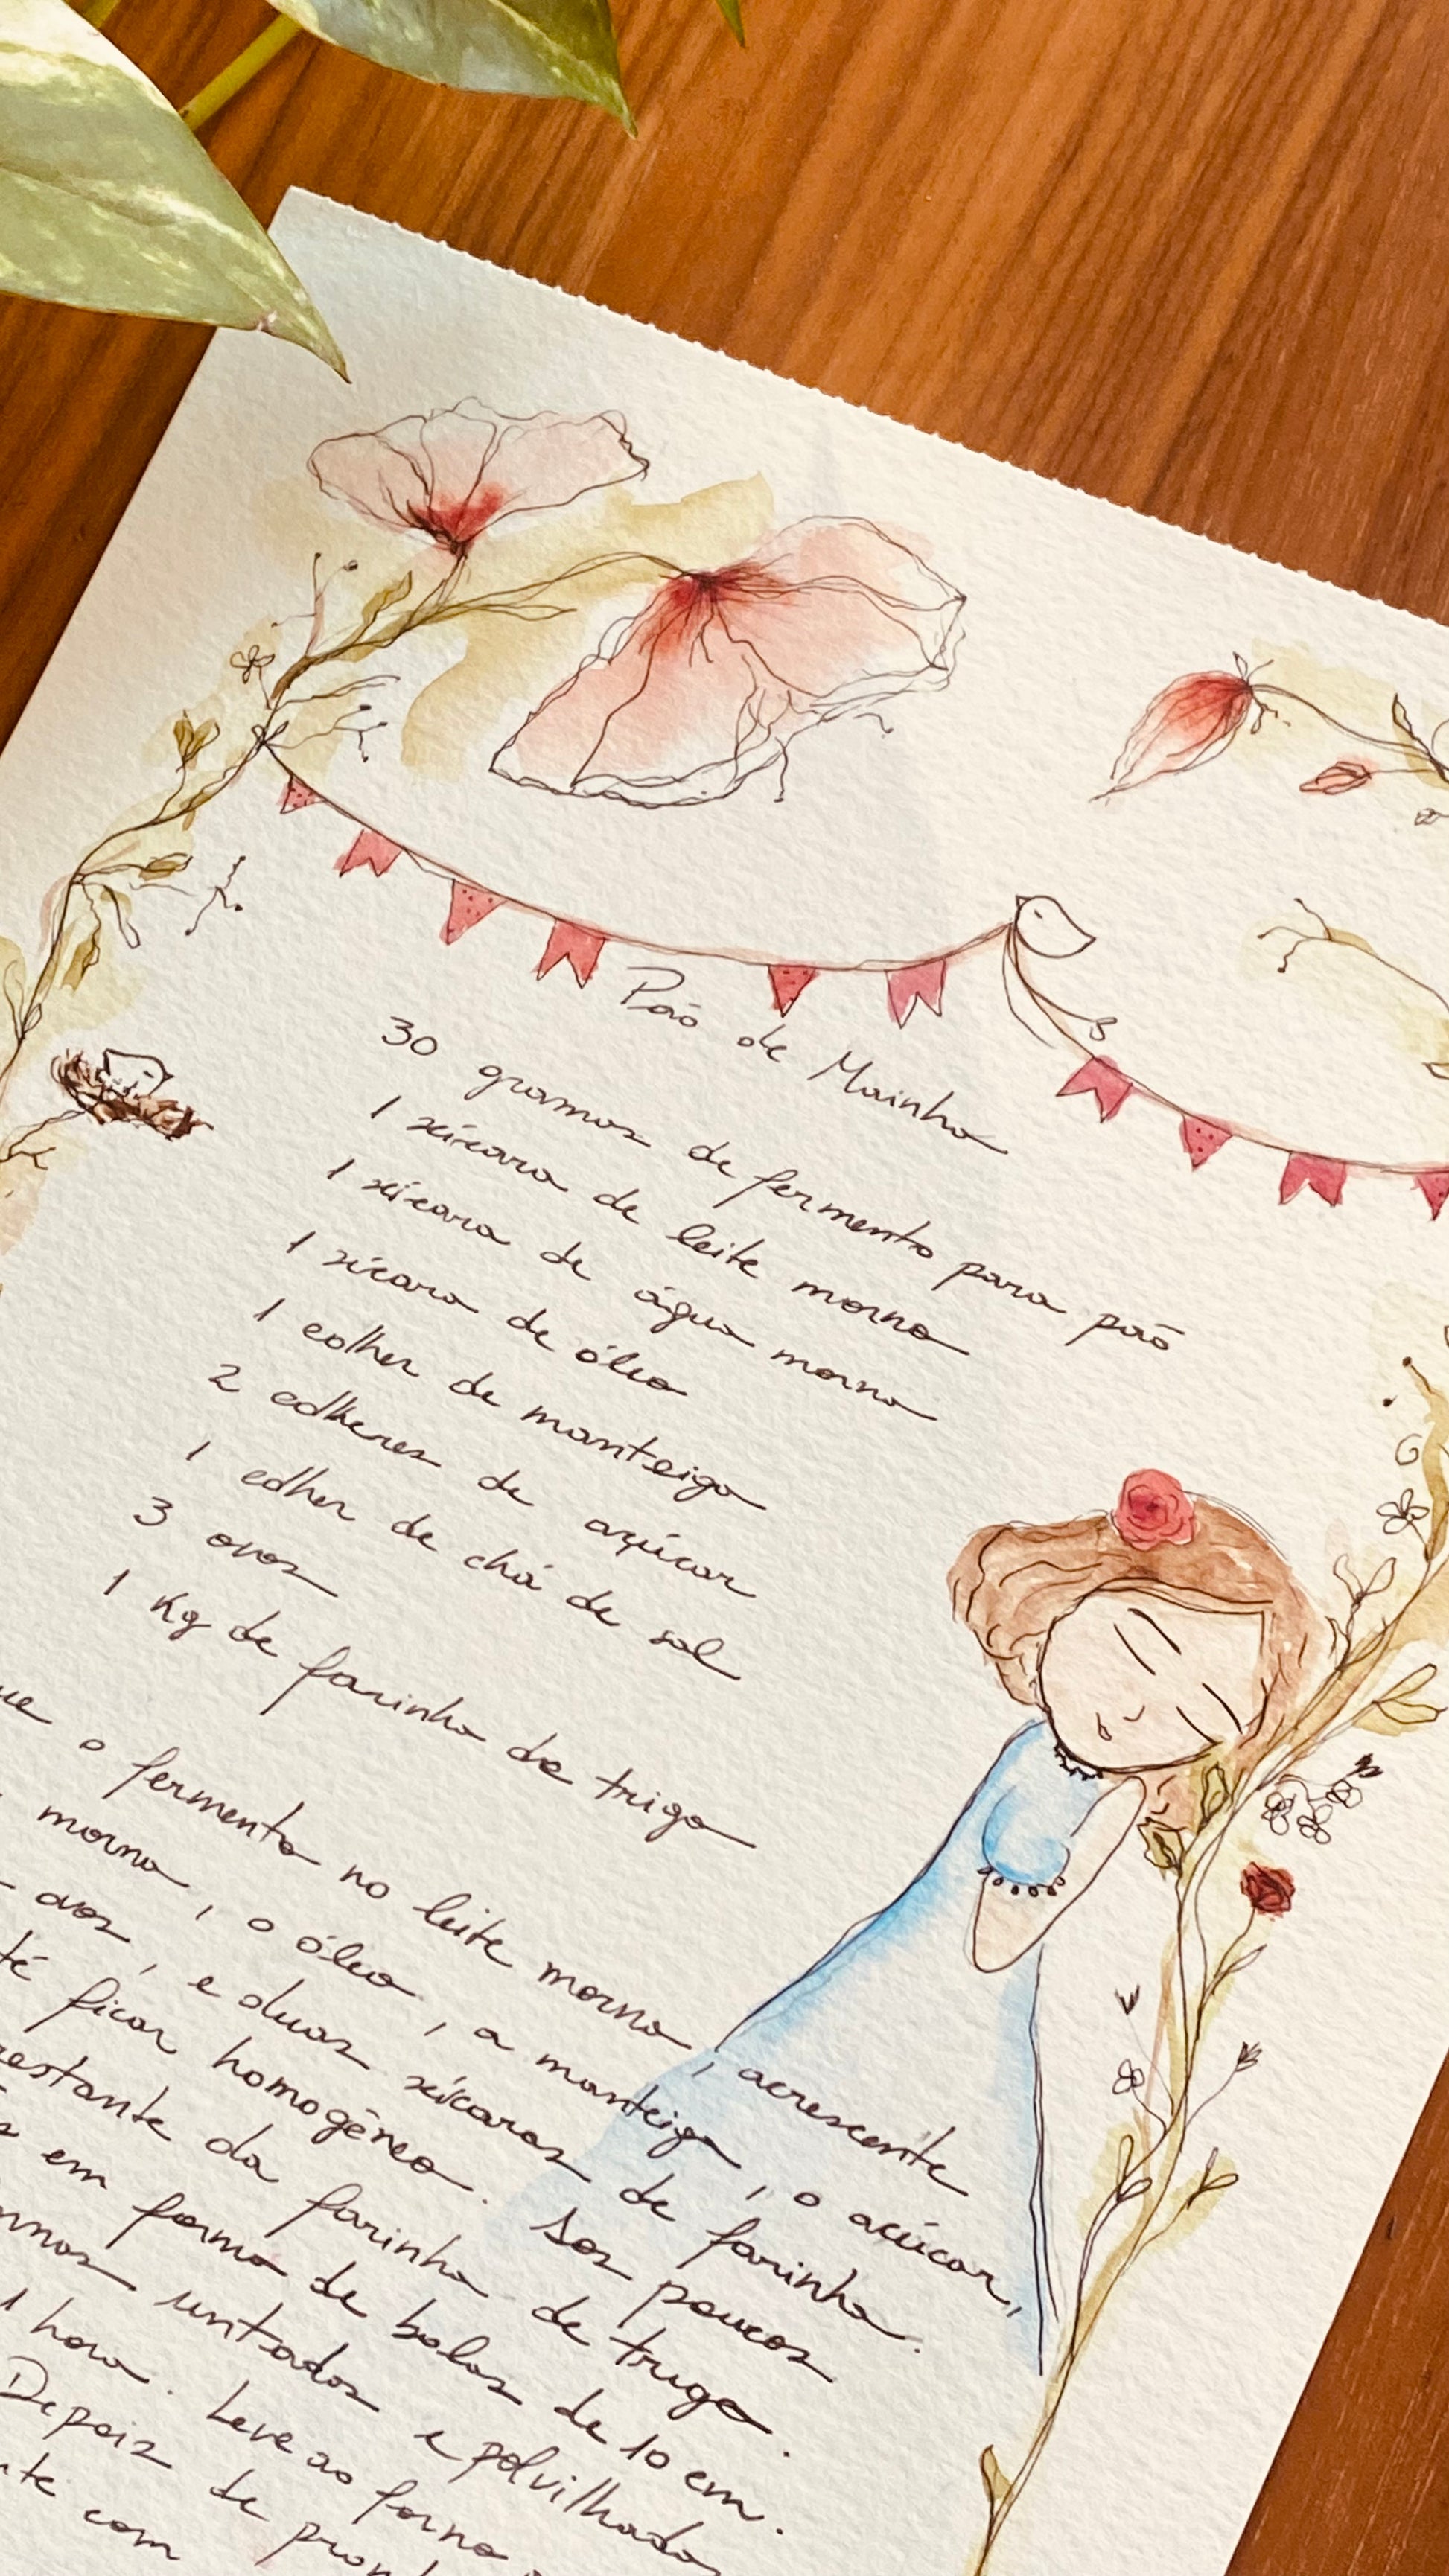 Pão de Mainha
30 gramas de fermento para pão
1 xícara de leite morno
1 xícara de água morna
1 xícara de óleo
1 colher de manteiga
2 colheres de açúcar
1 colher de chá de sal
3 ovos
1 Kg de farinha de trigo
o fermento no leite morno, acrescente
morna, o óleo, a manteiga, o açúcar,
ovos, e duas xícaras de farinha.
ficar homogêneo. Aos poucos
restante da farinha de trigo.
em forma de bolas de 10 cm.
untados e polvilhados
1 hora. Leve ao forno
Depois de
com